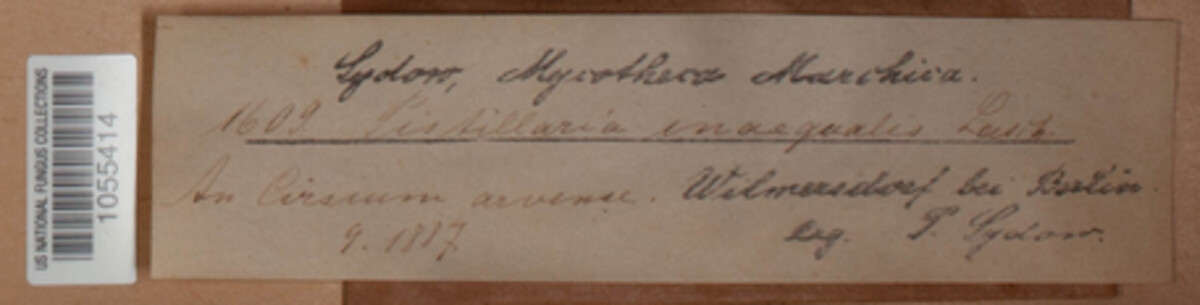 US NATIONAL FUNGUS COLLECTIONS
1055414
Sydow, Mycotheca Marchica.
1609. Pistillaria inaequalis Lasch.
An Cirsium arvense. Wilmersdorf bei Berlin.
9. 1887. leg. P. Sydow.